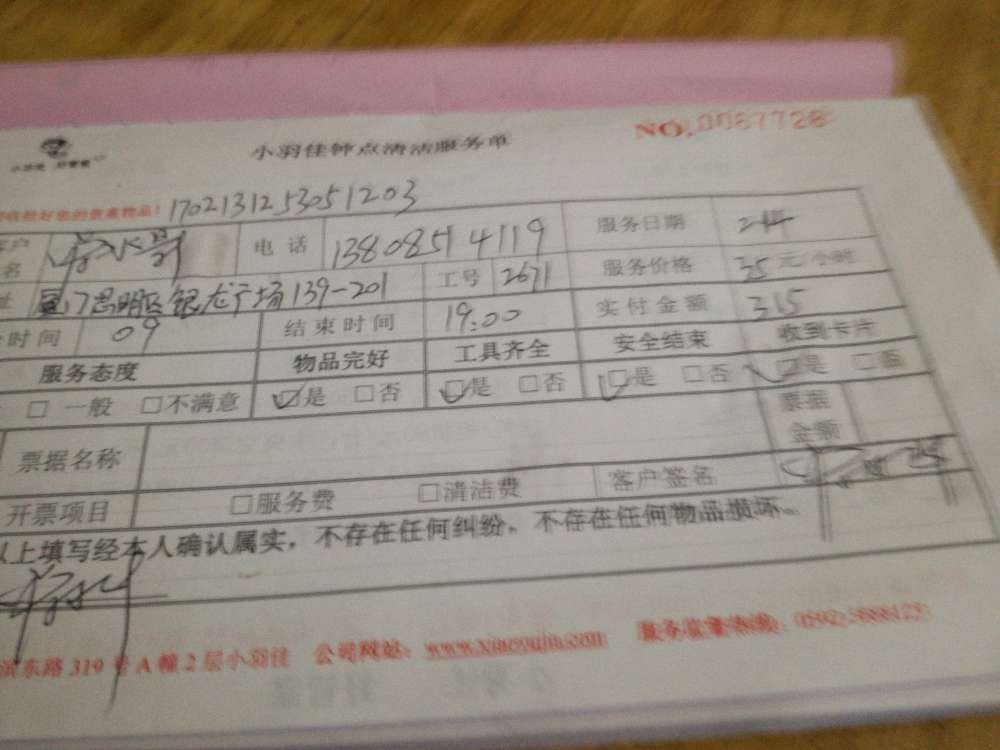 小羽佳钟点清洁服务单 NO.0067728
170213125305 1203
户 电话 13808514119 服务日期
名
址 139-201 工号 2671 服务价格 35元/小时
时间 09 结束时间 19:00 实付金额 315
服务态度 物品完好 工具齐全 安全结束 收到卡片
□一般 □不满意 □是 □否 □是 □否 □是 □否 □是 □否
票据名称 票据金额
开票项目 □服务费 □清洁费 客户签名
以上填写经本人确认属实，不存在任何纠纷，不存在任何物品损坏。
滨东路319号A幢2层小羽佳 公司网站：www.xiaoyujia.com 服务监督热线：